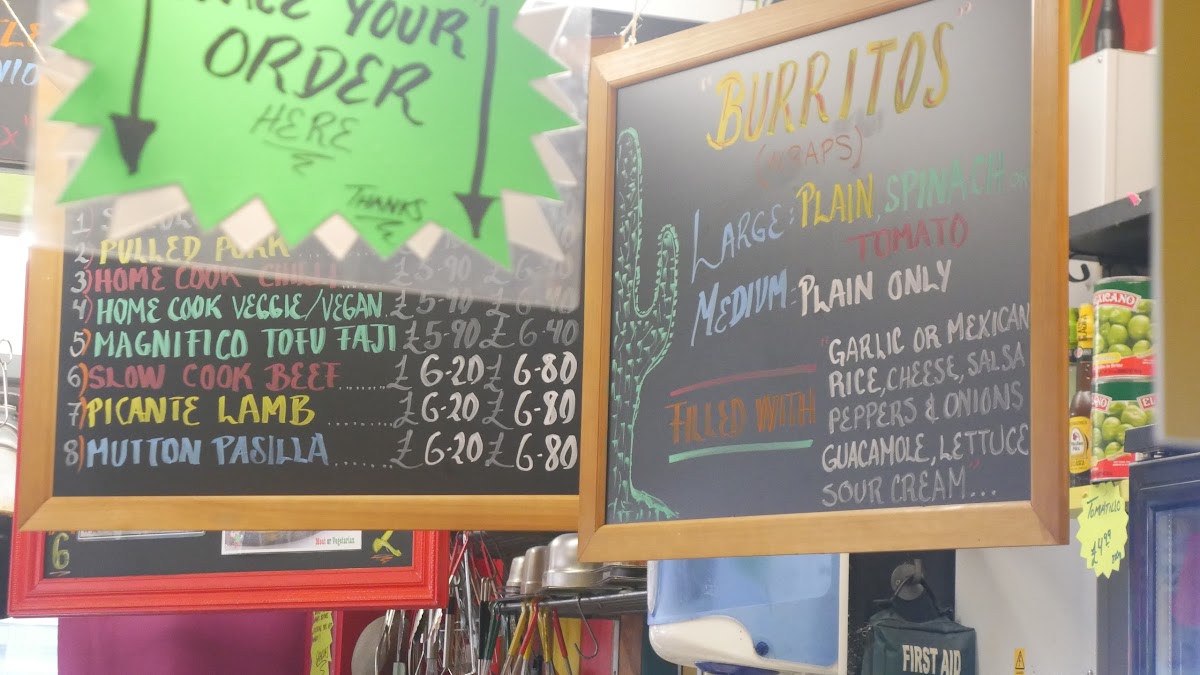 YOUR
ORDER
HERE
THANKS
1)
2) PULLED PORK
3) HOME COOK CHILLI.... £5-90 £6-40
4) HOME COOK VEGGIE/VEGAN. £5-90 £6-40
5) MAGNIFICO TOFU FAJI £5-90 £6-40
6) SLOW COOK BEEF....... £6-20 £6-80
7) PICANTE LAMB ........ £6-20 £6-80
8) MUTTON PASILLA...... £6-20 £6-80
"BURRITOS"
(WRAPS)
LARGE: PLAIN, SPINACH OR
TOMATO
MEDIUM: PLAIN ONLY
FILLED WITH
"GARLIC OR MEXICAN
RICE, CHEESE, SALSA
PEPPERS & ONIONS
GUACAMOLE, LETTUCE
SOUR CREAM"...
6
Meat or Vegetarian
TOMATILLO
£4.99
FIRST AID